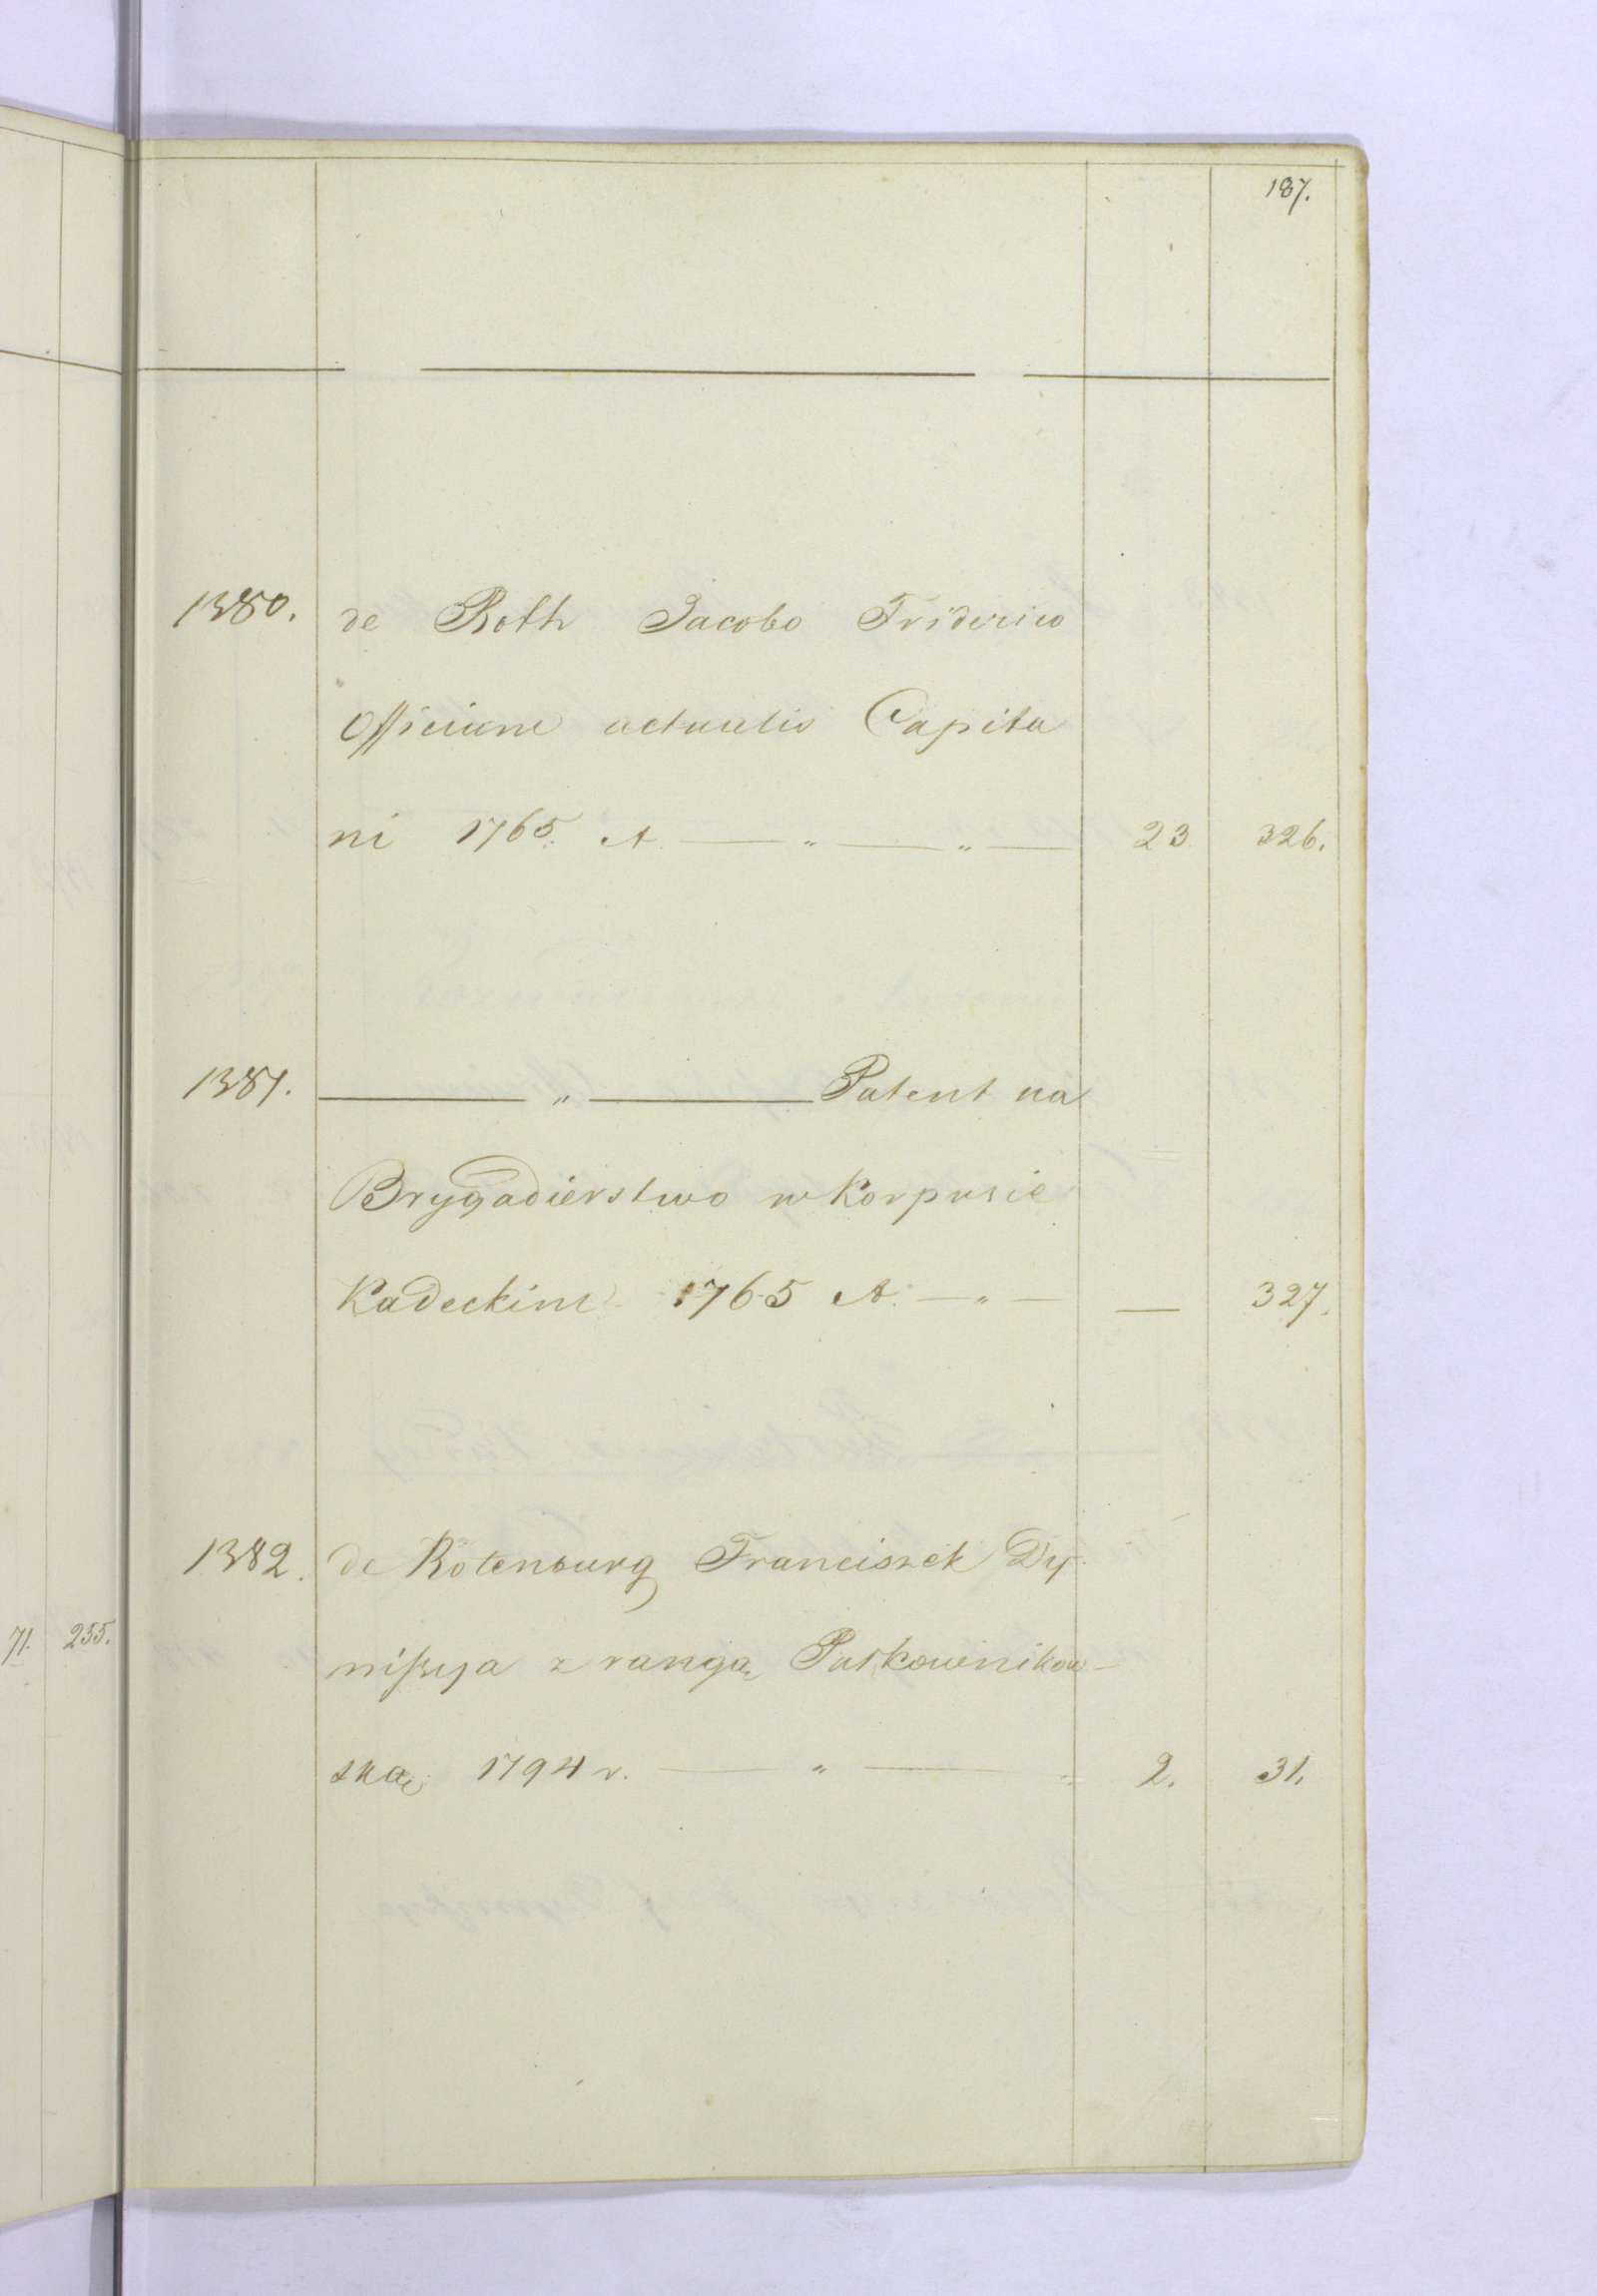 187.
1380. de Roth Jacobo Friderico
Officium actualis Capita
ni 1765. A. — „ — „ — 23 326.
1381. — „ — Patent na
Brygadierstwo w Korpusie
Kadeckim 1765 A. — „ — — 327.
1382. de Rotenburg Franciszek Dy-
missya z rangą Pułkownikow-
ską 1794 r. — „ — „ 2. 31.
71. 255.